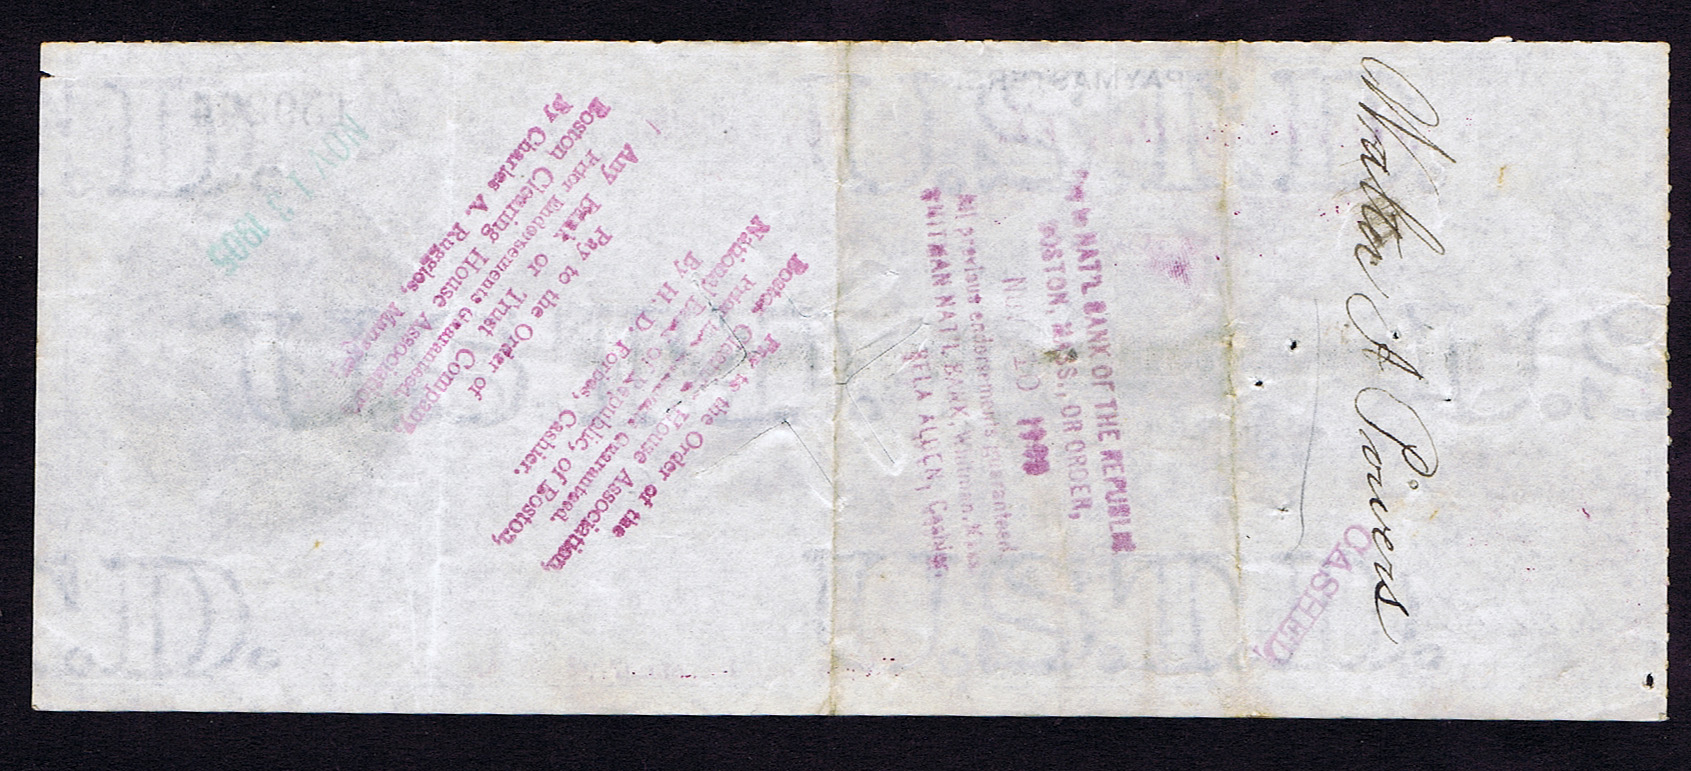 Walter A Powers
CASHED,
NAT'L BANK OF THE REPUBLIC
BOSTON, MASS., OR ORDER,
NOV 10
All previous endorsements guaranteed
WHITMAN NAT'L BANK, Whitman, Mass
BELA ALLEN, Cashier.
Pay to the Order of the
Boston Clearing House Association,
Prior Guaranteed.
National Bank of Republic, of Boston,
By H. D. Forbes, Cashier.
Pay to the Order of
Any Bank or Trust Company,
Prior Endorsements Guaranteed.
Boston Clearing House Association,
By Charles A. Ruggles, Manager.
NOV 13
PAYMASTER